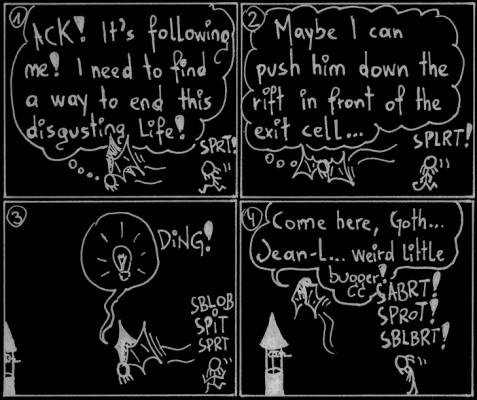 1
ACK! It's following
me! I need to find
a way to end this
disgusting Life!
SPRT!
2
Maybe I can
push him down the
rift in front of the
exit cell...
SPLRT!
3
DING!
SBLOB
SPIT
SPRT
4
Come here, Goth...
Jean-L... weird little
bugger!
CC
SABRT!
SPROT!
SBLBRT!